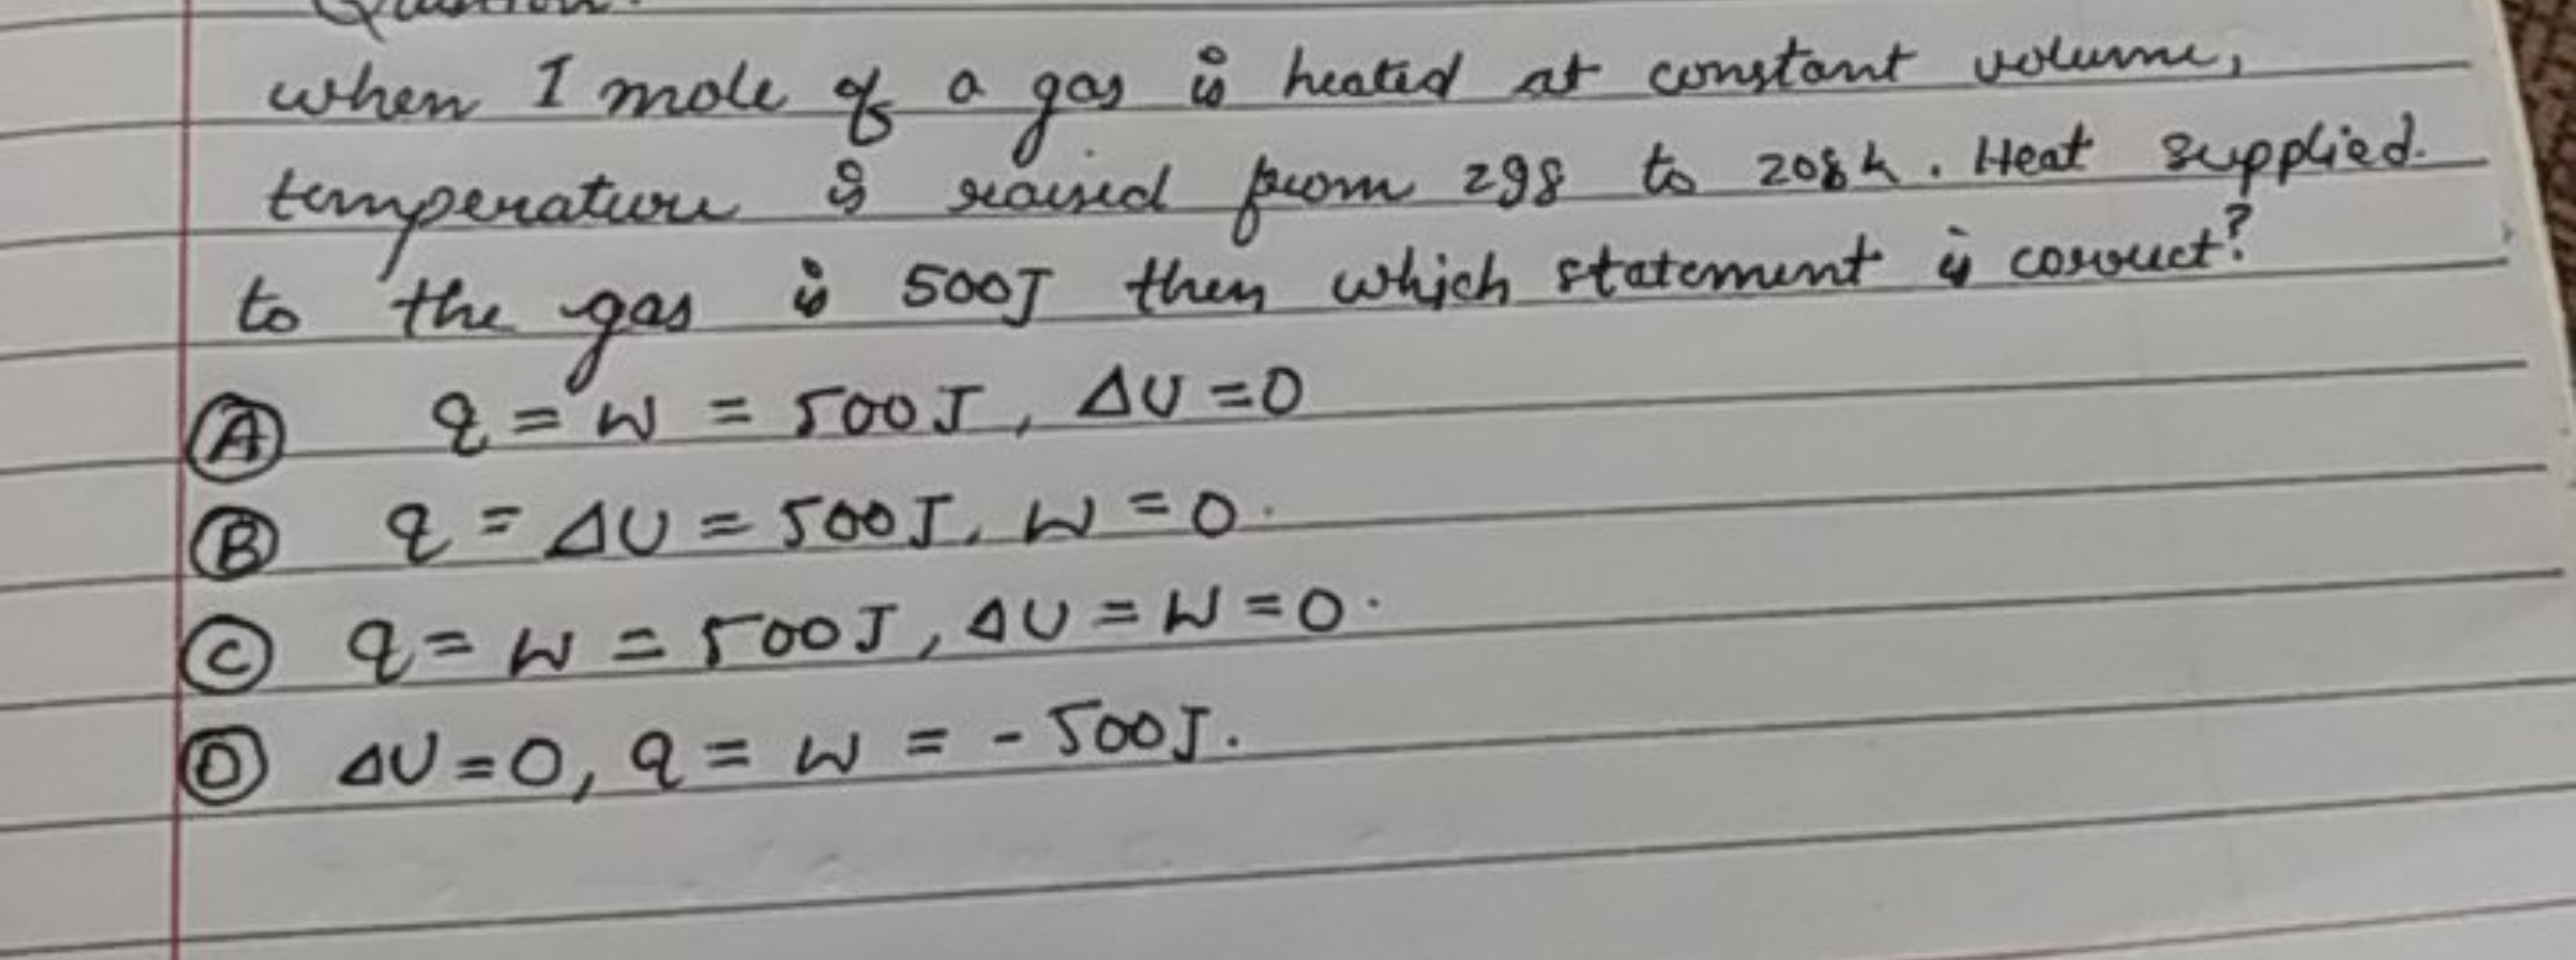 Question:
when 1 mole of a gas is heated at constant volume,
temperature is raised from 298 to 208k. Heat supplied.
to the gas is 500J then which statement is correct?
(A) q = w = 500J, ΔU = 0
(B) q = ΔU = 500J, W = 0.
(C) q = w = 500J, ΔU = W = 0.
(D) ΔU = 0, q = w = -500J.